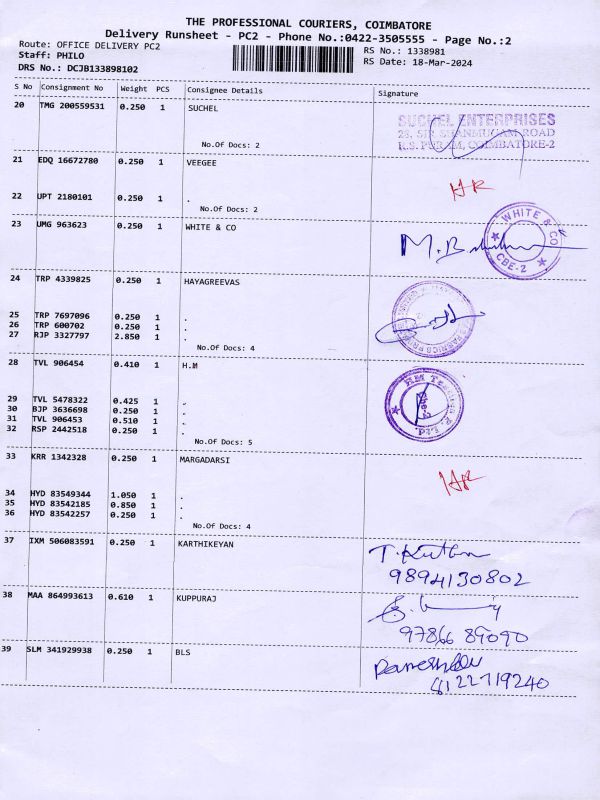 THE PROFESSIONAL COURIERS, COIMBATORE
Delivery Runsheet - PC2 - Phone No.:0422-3505555 - Page No.:2
Route: OFFICE DELIVERY PC2
RS No.: 1338981
Staff: PHILO
RS Date: 18-Mar-2024
DRS No.: DCJB133898102
S No Consignment No Weight PCS Consignee Details Signature
20 TMG 200559531 0.250 1 SUCHEL
SUCHEL ENTERPRISES
23, SIR SHANMUGAM ROAD
R.S. PURAM, COIMBATORE-2
No.Of Docs: 2
21 EDQ 16672780 0.250 1 VEEGEE
22 UPT 2180101 0.250 1 .
No.Of Docs: 2
23 UMG 963623 0.250 1 WHITE & CO
WHITE & CO
CBE-2
24 TRP 4339825 0.250 1 HAYAGREEVAS
25 TRP 7697096 0.250 1 .
26 TRP 600702 0.250 1 .
27 RJP 3327797 2.850 1 .
No.Of Docs: 4
28 TVL 906454 0.410 1 H.M
29 TVL 5478322 0.425 1 .
30 BJP 3636698 0.250 1 .
31 TVL 906453 0.510 1 .
32 RSP 2442518 0.250 1 .
No.Of Docs: 5
33 KRR 1342328 0.250 1 MARGADARSI
34 HYD 83549344 1.050 1 .
35 HYD 83542185 0.850 1 .
36 HYD 83542257 0.250 1 .
No.Of Docs: 4
37 IXM 506083591 0.250 1 KARTHIKEYAN
9894130802
38 MAA 864993613 0.610 1 KUPPURAJ
97866 89090
39 SLM 341929938 0.250 1 BLS
8122719240